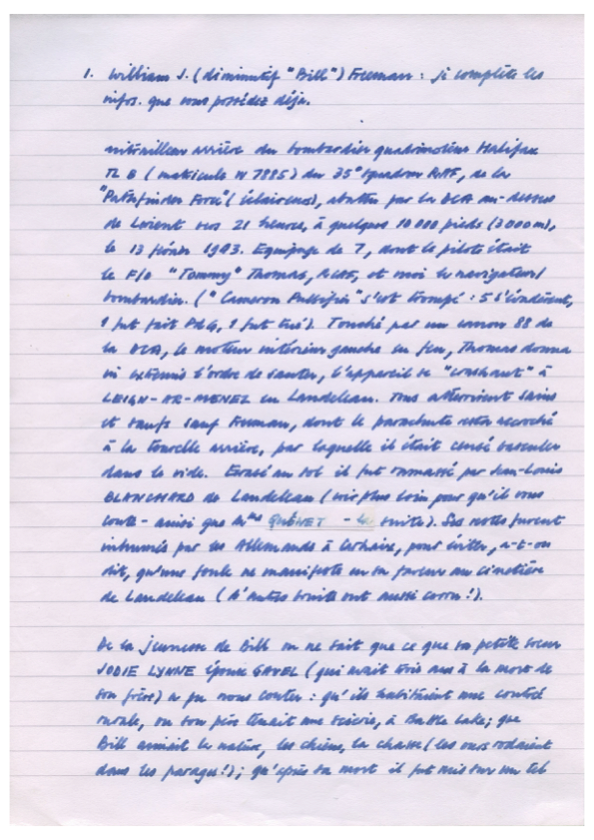 1. William J. (diminutif "Bill") Freeman : je complète les
infos. que vous possédez déja.
mitrailleur arrière du bombardier quadrimoteur Halifax
TL B (matricule W 7885) du 35° squadron RAF, de la
"Pathfinder Force" (éclaireurs), abattu par la DCA au-dessus
de Lorient vers 21 heures, à quelques 10 000 pieds (3 000 m),
le 13 février 1943. Equipage de 7, dont le pilote était
le F/O "Tommy" Thomas, RCAF, et moi le navigateur/
bombardier. ("Cameron Pulsifer" s'est trompé : 5 s'évadèrent,
1 fut fait PDG, 1 fut tué). Touché par un canon 88 de
la DCA, le moteur intérieur gauche en feu, Thomas donna
in extremis l'ordre de sauter, l'appareil se "crashant" à
LEIGN-AR-MENEZ en Landeleau. Tous atterrirent sains
et saufs sauf Freeman, dont le parachute resta accroché
à la tourelle arrière, par laquelle il était censé basculer
dans le vide. Ecrasé au sol il fut ramassé par Jean-Louis
BLANCHARD de Landeleau (voir plus loin pour qu'il vous
conte - ainsi que Mme QUÉNET - la suite). Ses restes furent
inhumés par les Allemands à Carhaix, pour éviter, a-t-on
dit, qu'une foule ne manifeste en sa faveur au cimetière
de Landeleau (d'autres bruits ont aussi couru !).
De la jeunesse de Bill on ne sait que ce que sa petite soeur
JODIE LYNNE épouse GAVEL (qui avait trois ans à la mort de
son frère) a pu nous conter : qu'ils habitaient une contrée
rurale, où son père tenait une scierie, à Battle Lake; que
Bill aimait la nature, les chiens, la chasse (les ours rodaient
dans les parages !); qu'après sa mort il fut mis sur un tel